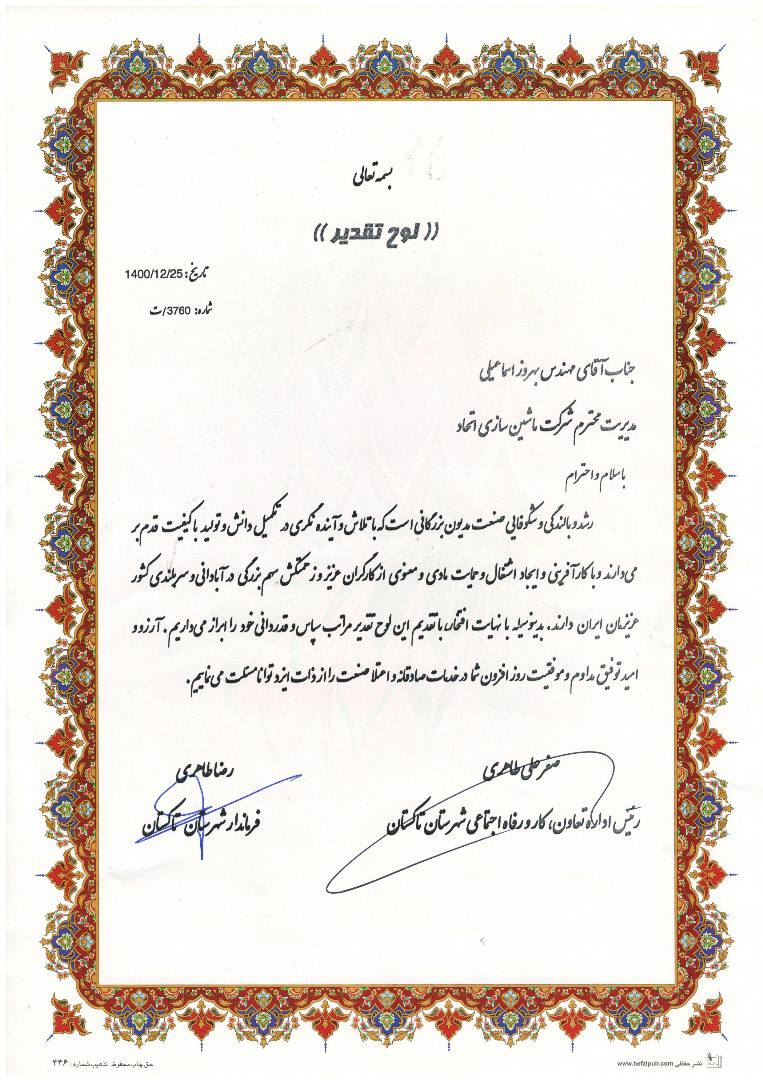 بسمه تعالی
(( لوح تقدیر ))
تاریخ: 1400/12/25
شماره: 3760/ت
جناب آقای مهندس بهروز اسماعیلی
مدیریت محترم شرکت ماشین سازی اتحاد
باسلام و احترام
رشد و بالندگی و شکوفایی صنعت مدیون بزرگانی است که با تلاش و آینده نگری در تکمیل دانش و تولید با کیفیت قدم بر
می‌دارند و با کارآفرینی و ایجاد اشتغال و حمایت مادی و معنوی از کارگران عزیز و زحمتکش سهم بزرگی در آبادانی و سربلندی کشور
عزیزمان ایران دارند. بدینوسیله با نهایت افتخار، با تقدیم این لوح تقدیر مراتب سپاس و قدردانی خود را ابراز می‌داریم. آرزو و
امید توفیق مداوم و موفقیت روز افزون شما در خدمات صادقانه و اعتلا صنعت را از ذات ایزد توانا مسئلت می‌نماییم.
صفرعلی طاهری
رئیس اداره تعاون، کار و رفاه اجتماعی شهرستان تاکستان
رضا طاهری
فرماندار شهرستان تاکستان
نشر حفظی www.hefzipub.com
حق چاپ محفوظ. تذهیب شماره: ۴۴۶